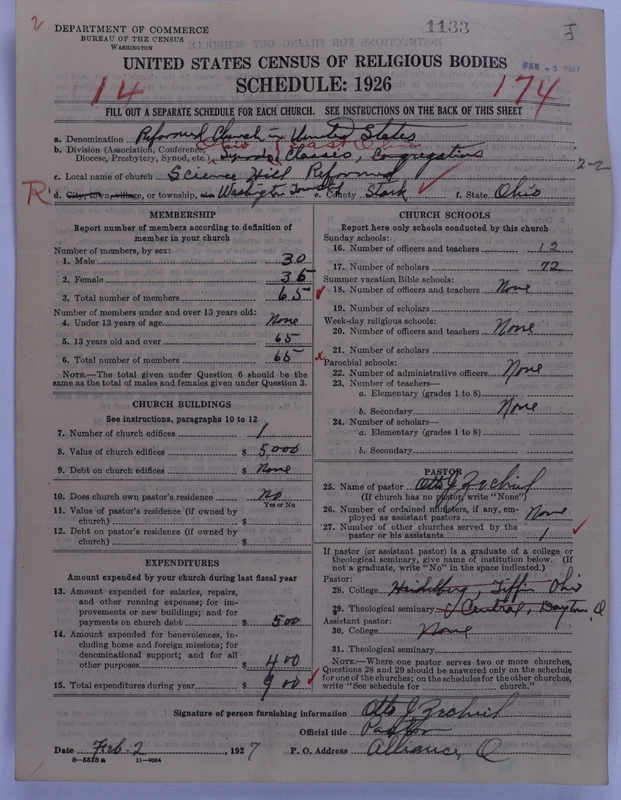 2
DEPARTMENT OF COMMERCE
BUREAU OF THE CENSUS
WASHINGTON
1133
UNITED STATES CENSUS OF RELIGIOUS BODIES
SCHEDULE: 1926
14
174
FILL OUT A SEPARATE SCHEDULE FOR EACH CHURCH. SEE INSTRUCTIONS ON THE BACK OF THIS SHEET
a. Denomination Reformed Church in United States
Ohio East Ohio
b. Division (Association, Conference, Diocese, Presbytery, Synod, etc.) Synod, Classes, Congregations
2-2
c. Local name of church Science Hill Reformed
R d. City, town, village, or township, etc. Washington Township e. County Stark f. State Ohio
MEMBERSHIP
Report number of members according to definition of member in your church
Number of members, by sex:
1. Male 30
2. Female 35
3. Total number of members 65
Number of members under and over 13 years old:
4. Under 13 years of age None
5. 13 years old and over 65
6. Total number of members 65
NOTE.—The total given under Question 6 should be the same as the total of males and females given under Question 3.
CHURCH BUILDINGS
See instructions, paragraphs 10 to 12
7. Number of church edifices 1
8. Value of church edifices $ 5,000
9. Debt on church edifices $ None
10. Does church own pastor's residence No
Yes or No
11. Value of pastor's residence (if owned by church) $
12. Debt on pastor's residence (if owned by church) $
EXPENDITURES
Amount expended by your church during last fiscal year
13. Amount expended for salaries, repairs, and other running expenses; for improvements or new buildings; and for payments on church debt $ 500
14. Amount expended for benevolences, including home and foreign missions; for denominational support; and for all other purposes $ 400
15. Total expenditures during year $ 900
CHURCH SCHOOLS
Report here only schools conducted by this church
Sunday schools:
16. Number of officers and teachers 12
17. Number of scholars 72
Summer vacation Bible schools:
18. Number of officers and teachers None
19. Number of scholars
Week-day religious schools:
20. Number of officers and teachers None
21. Number of scholars
Parochial schools:
22. Number of administrative officers None
23. Number of teachers—
a. Elementary (grades 1 to 8)
b. Secondary None
24. Number of scholars—
a. Elementary (grades 1 to 8)
b. Secondary
PASTOR
25. Name of pastor Otto J
(If church has no pastor, write "None")
26. Number of ordained ministers, if any, employed as assistant pastors None
27. Number of other churches served by the pastor or his assistants 1
If pastor (or assistant pastor) is a graduate of a college or theological seminary, give name of institution below. (If not a graduate, write "No" in the space indicated.)
Pastor:
28. College Heidelberg, Tiffin Ohio
29. Theological seminary Central, Dayton, O
Assistant pastor:
30. College None
31. Theological seminary
NOTE.—Where one pastor serves two or more churches, Questions 28 and 29 should be answered only on the schedule for one of the churches; on the schedules for the other churches, write "See schedule for church."
Signature of person furnishing information Otto J
Official title Pastor
Date Feb. 2, 1927 P. O. Address Alliance, O
8—5516 a 11—9064